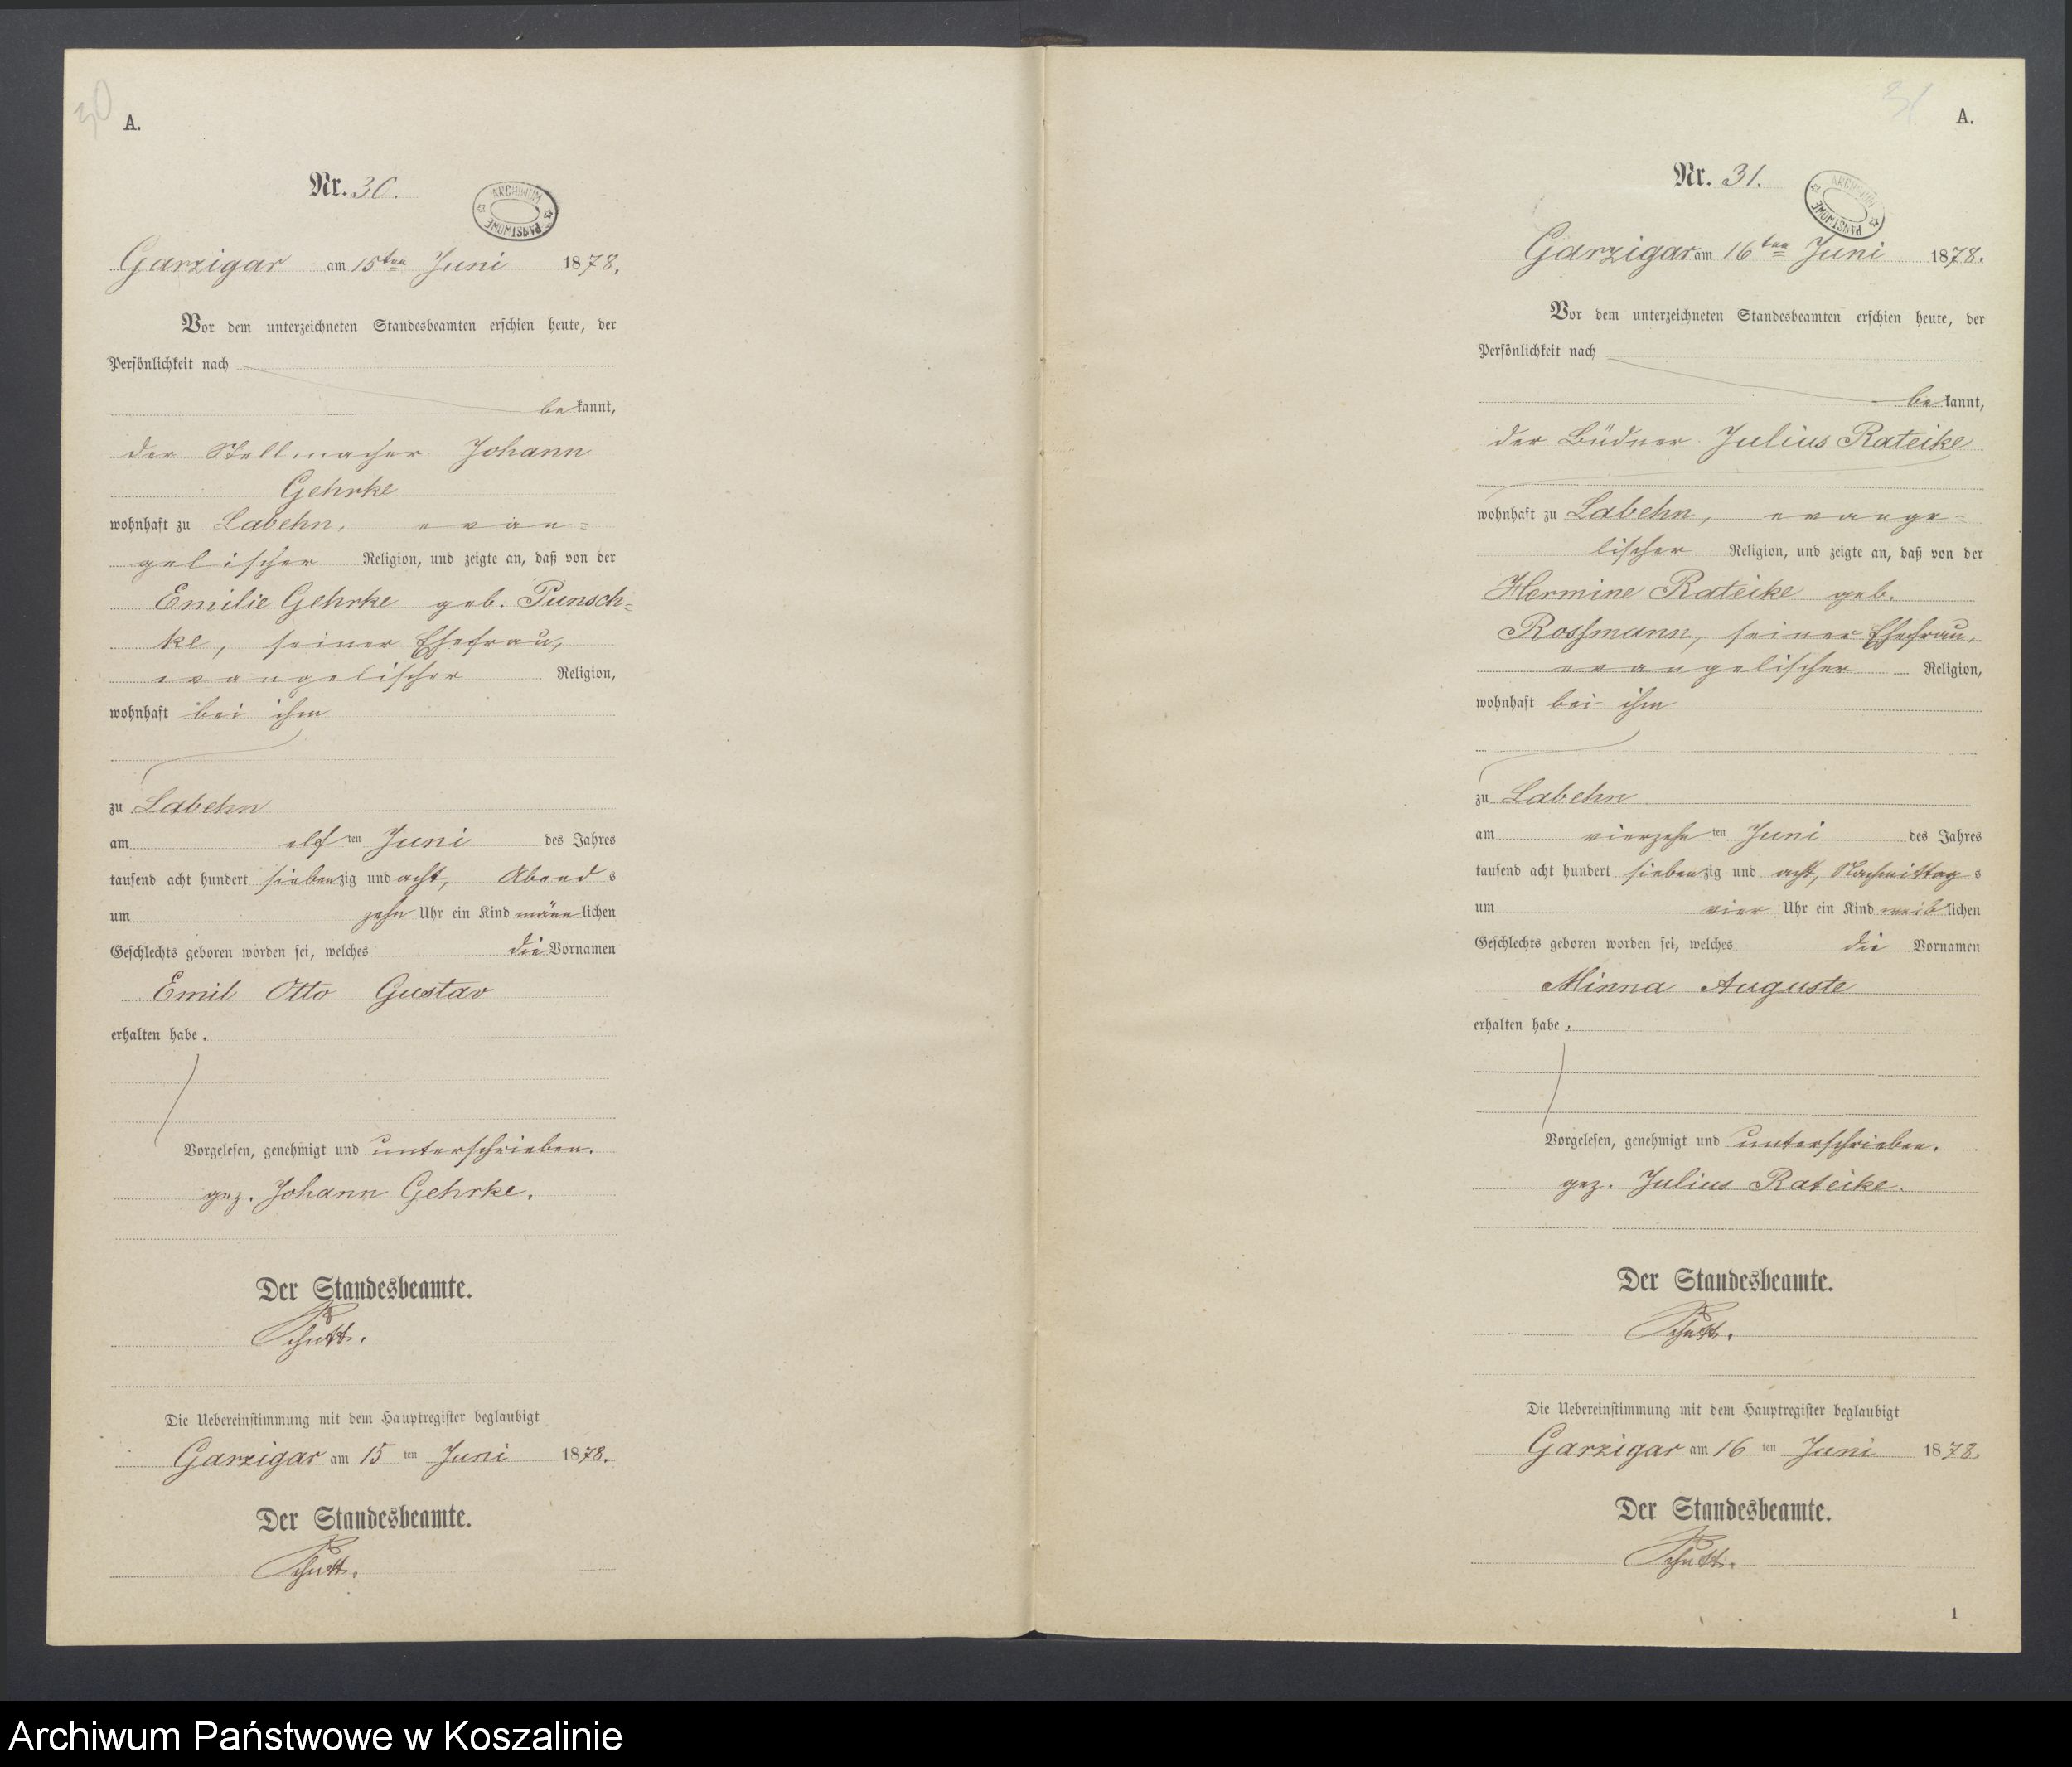 30
A.
Nr. 30.
ARCHIWUM PAŃSTWOWE
Garzigar am 15ten Juni 1878.
Vor dem unterzeichneten Standesbeamten erschien heute, der
Persönlichkeit nach
bekannt,
der Stellmacher Johann
Gehrke
wohnhaft zu Labehn, evan=
gelischer Religion, und zeigte an, daß von der
Emilie Gehrke geb. Punsch=
ke, seiner Ehefrau,
evangelischer Religion,
wohnhaft bei ihm
zu Labehn
am elften Juni des Jahres
tausend acht hundert siebenzig und acht, Abends
um zehn Uhr ein Kind männlichen
Geschlechts geboren worden sei, welches die Vornamen
Emil Otto Gustav
erhalten habe.
Vorgelesen, genehmigt und unterschrieben.
gez. Johann Gehrke.
Der Standesbeamte.
Schutt.
Die Uebereinstimmung mit dem Hauptregister beglaubigt
Garzigar am 15ten Juni 1878.
Der Standesbeamte.
Schutt.
31
A.
Nr. 31.
ARCHIWUM PAŃSTWOWE
Garzigar am 16ten Juni 1878.
Vor dem unterzeichneten Standesbeamten erschien heute, der
Persönlichkeit nach
bekannt,
der Büdner Julius Rateike
wohnhaft zu Labehn, evange=
lischer Religion, und zeigte an, daß von der
Hermine Rateike geb.
Rossmann, seiner Ehefrau,
evangelischer Religion,
wohnhaft bei ihm
zu Labehn
am vierzehnten Juni des Jahres
tausend acht hundert siebenzig und acht, Nachmittags
um vier Uhr ein Kind weiblichen
Geschlechts geboren worden sei, welches die Vornamen
Minna Auguste
erhalten habe.
Vorgelesen, genehmigt und unterschrieben.
gez. Julius Rateike.
Der Standesbeamte.
Schutt.
Die Uebereinstimmung mit dem Hauptregister beglaubigt
Garzigar am 16ten Juni 1878.
Der Standesbeamte.
Schutt.
1
Archiwum Państwowe w Koszalinie